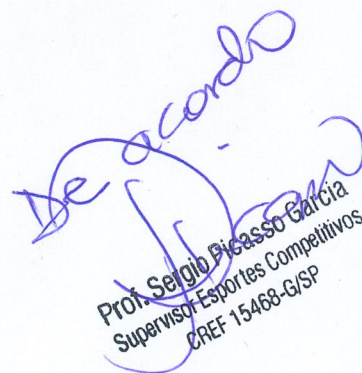 De acordo
Prof. Sergio Picasso Garcia
Supervisor Esportes Competitivos
CREF 15468-G/SP